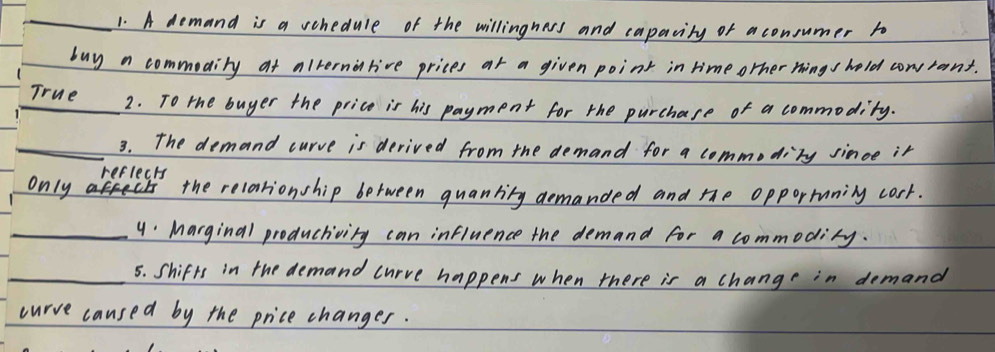 1. A demand is a schedule of the willingness and capacity of a consumer to
buy a commodity at alternative prices at a given point in time other things held constant.
True 2. To the buyer the price is his payment for the purchase of a commodity.
3. The demand curve is derived from the demand for a commodity since it
reflects
only affects the relationship between quantity demanded and the opportunity cost.
4. Marginal productivity can influence the demand for a commodity.
5. Shifts in the demand curve happens when there is a change in demand
curve caused by the price changes.